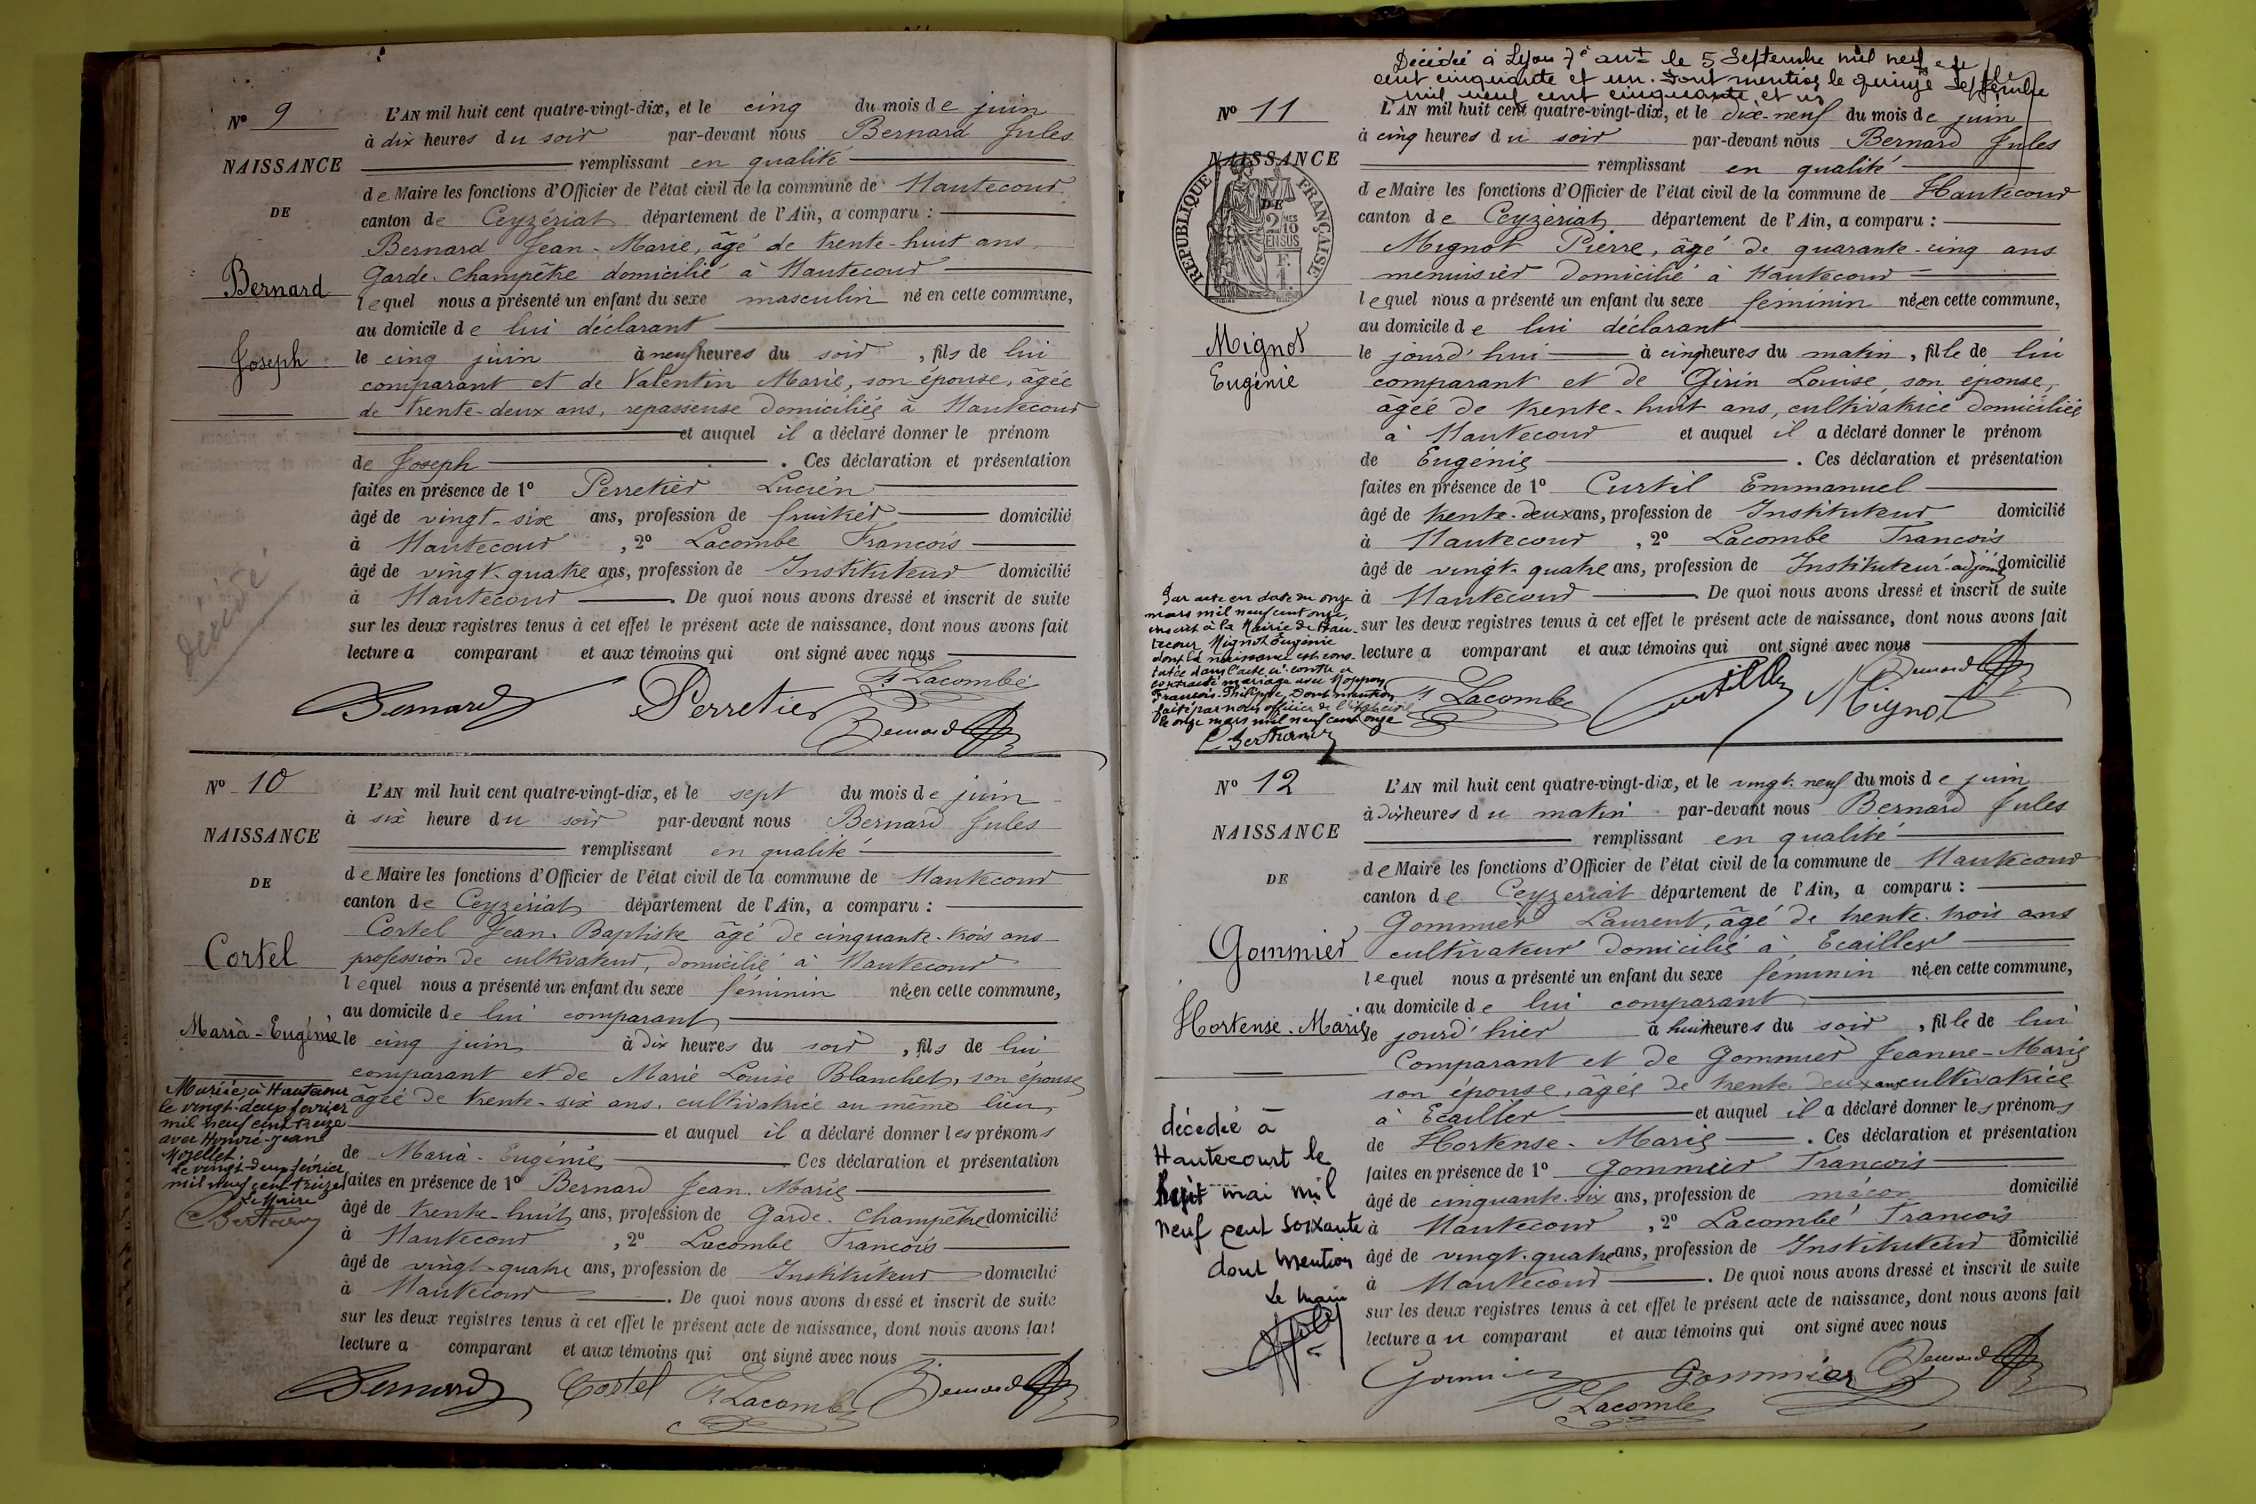 Nº 9
NAISSANCE
DE
Bernard
Joseph
décédé
L'AN mil huit cent quatre-vingt-dix, et le cinq du mois de juin
à dix heures du soir par-devant nous Bernard Jules
remplissant en qualité
de Maire les fonctions d'Officier de l'état civil de la commune de Hautecour
canton de Ceyzériat département de l'Ain, a comparu :
Bernard Jean-Marie, âgé de trente-huit ans
Garde-Champêtre domicilié à Hautecour
lequel nous a présenté un enfant du sexe masculin né en cette commune,
au domicile de lui déclarant
le cinq juin à neuf heures du soir, fils de lui
comparant et de Valentin Marie, son épouse, âgée
de trente-deux ans, repasseuse domiciliée à Hautecour
et auquel il a déclaré donner le prénom
de Joseph. Ces déclaration et présentation
faites en présence de 1º Perretier Lucien
âgé de vingt-six ans, profession de fruitier domicilié
à Hautecour, 2º Lacombe François
âgé de vingt-quatre ans, profession de Instituteur domicilié
à Hautecour. De quoi nous avons dressé et inscrit de suite
sur les deux registres tenus à cet effet le présent acte de naissance, dont nous avons fait
lecture a comparant et aux témoins qui ont signé avec nous
Bernard Perretier F. Lacombe
Bernard
Nº 10
NAISSANCE
DE
Cortel
Maria-Eugénie
Mariée à Hautecour
le vingt-deux février
mil neuf cent treize
avec Honoré-Jean
Mozellet.
Le vingt-deux février
mil neuf cent treize
Le Maire
L'AN mil huit cent quatre-vingt-dix, et le sept du mois de juin
à six heure du soir par-devant nous Bernard Jules
remplissant en qualité
de Maire les fonctions d'Officier de l'état civil de la commune de Hautecour
canton de Ceyzériat département de l'Ain, a comparu :
Cortel Jean-Baptiste âgé de cinquante-trois ans
profession de cultivateur, domicilié à Hautecour
lequel nous a présenté un enfant du sexe féminin née en cette commune,
au domicile de lui comparant
le cinq juin à dix heures du soir, fils de lui
comparant et de Marie Louise Blanchet, son épouse
âgée de trente-six ans, cultivatrice au même lieu,
et auquel il a déclaré donner les prénoms
de Maria-Eugénie Ces déclaration et présentation
faites en présence de 1º Bernard Jean-Marie
âgé de trente-huit ans, profession de Garde-Champêtre domicilié
à Hautecour, 2º Lacombe François
âgé de vingt-quatre ans, profession de Instituteur domicilié
à Hautecour. De quoi nous avons dressé et inscrit de suite
sur les deux registres tenus à cet effet le présent acte de naissance, dont nous avons fait
lecture a comparant et aux témoins qui ont signé avec nous
Bernard Cortel F. Lacombe Bernard
Décédée à Lyon 7è arrt le 5 Septembre mil neuf
cent cinquante et un. Dont mention le quinze Septembre
mil neuf cent cinquante et un
Nº 11
NAISSANCE
DE
RÉPUBLIQUE FRANÇAISE
2/10 EN SUS
F. 1
Mignot
Eugénie
Par acte en date du onze
mars mil neuf cent onze
inscrit à la Mairie de Hau-
tecour Mignot Eugénie
dont la naissance est cons-
tatée dans l'acte ci-contre a
contracté mariage avec Moppon
François-Philippe, Dont mention
faite par nous officier de l'état civil
le onze mars mil neuf cent onze
L'AN mil huit cent quatre-vingt-dix, et le dix-neuf du mois de juin
à cinq heures du soir par-devant nous Bernard Jules
remplissant en qualité
de Maire les fonctions d'Officier de l'état civil de la commune de Hautecour
canton de Ceyzériat département de l'Ain, a comparu :
Mignot Pierre, âgé de quarante-cinq ans
menuisier domicilié à Hautecour
lequel nous a présenté un enfant du sexe féminin née en cette commune,
au domicile de lui déclarant
le jourd'hui à cinq heures du matin, fille de lui
comparant et de Girin Louise, son épouse,
âgée de trente-huit ans, cultivatrice domiciliée
à Hautecour et auquel il a déclaré donner le prénom
de Eugénie. Ces déclaration et présentation
faites en présence de 1º Curtil Emmanuel
âgé de trente-deux ans, profession de Instituteur domicilié
à Hautecour, 2º Lacombe François
âgé de vingt-quatre ans, profession de Instituteur-adjoint domicilié
à Hautecour. De quoi nous avons dressé et inscrit de suite
sur les deux registres tenus à cet effet le présent acte de naissance, dont nous avons fait
lecture a comparant et aux témoins qui ont signé avec nous
F. Lacombe Curtil Mignot Bernard
Nº 12
NAISSANCE
DE
Gommier
Hortense-Marie
décédée à
Hautecourt le
huit mai mil
neuf cent soixante
dont mention
Le Maire
L'AN mil huit cent quatre-vingt-dix, et le vingt-neuf du mois de juin
à dix heures du matin par-devant nous Bernard Jules
remplissant en qualité
de Maire les fonctions d'Officier de l'état civil de la commune de Hautecour
canton de Ceyzériat département de l'Ain, a comparu :
Gommier Laurent, âgé de trente-trois ans
cultivateur domicilié à Ecailler
lequel nous a présenté un enfant du sexe féminin née en cette commune,
au domicile de lui comparant
le jourd'hier à huit heures du soir, fille de lui
Comparant et de Gommier Jeanne-Marie
son épouse, âgée de trente deux ans cultivatrice
à Ecailler et auquel il a déclaré donner les prénoms
de Hortense-Marie. Ces déclaration et présentation
faites en présence de 1º Gommier François
âgé de cinquante-six ans, profession de maçon domicilié
à Hautecour, 2º Lacombe François
âgé de vingt-quatre ans, profession de Instituteur domicilié
à Hautecour. De quoi nous avons dressé et inscrit de suite
sur les deux registres tenus à cet effet le présent acte de naissance, dont nous avons fait
lecture au comparant et aux témoins qui ont signé avec nous
Gommier Gommier Bernard
F. Lacombe